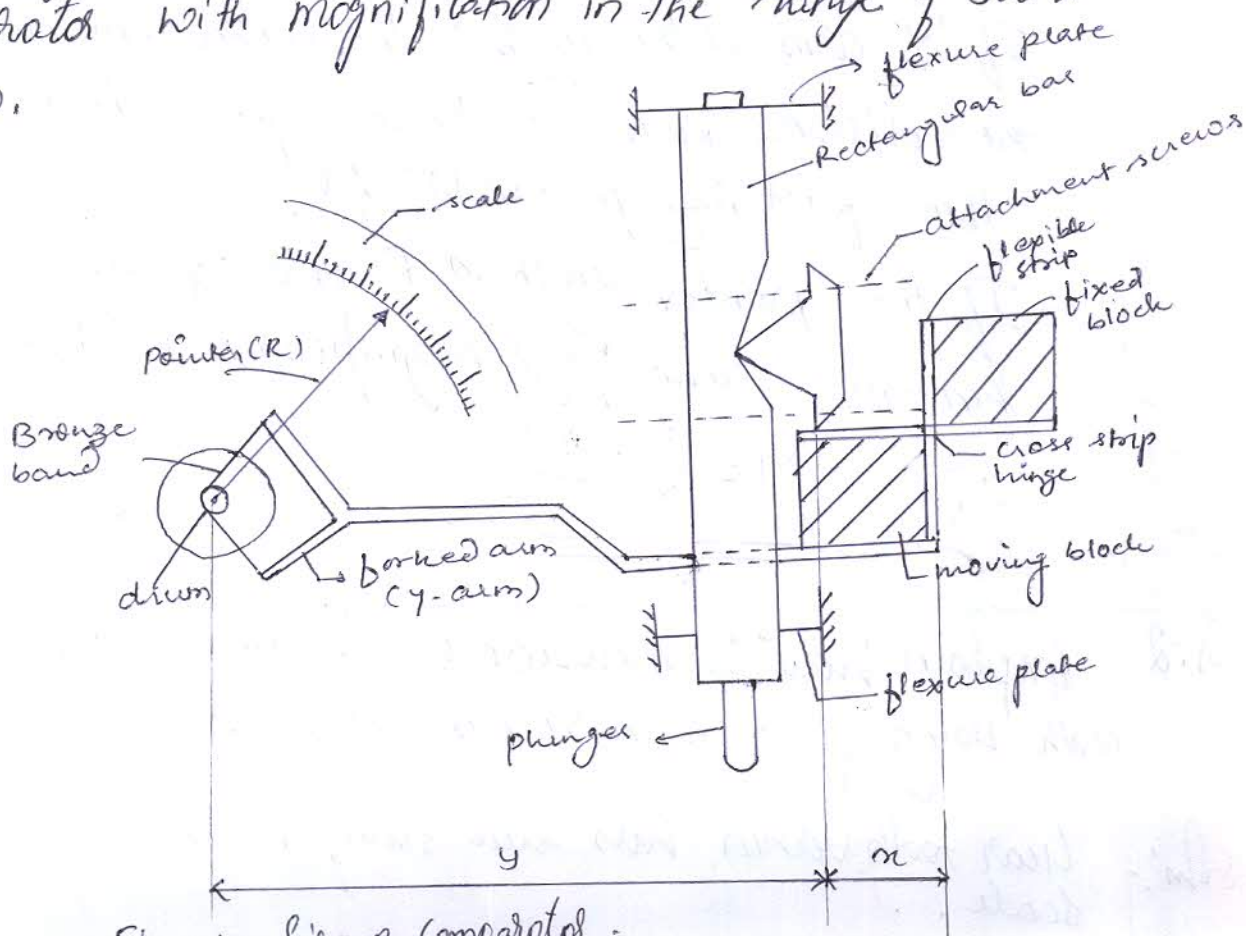 with magnification in the
flexure plate
Rectangular bar
attachment screws
flexible
strip
fixed
block
scale
Pointer(R)
Bronze
band
cross strip
hinge
forked arm
(y-arm)
drum
moving block
flexure plate
plunger
y
x
comparator